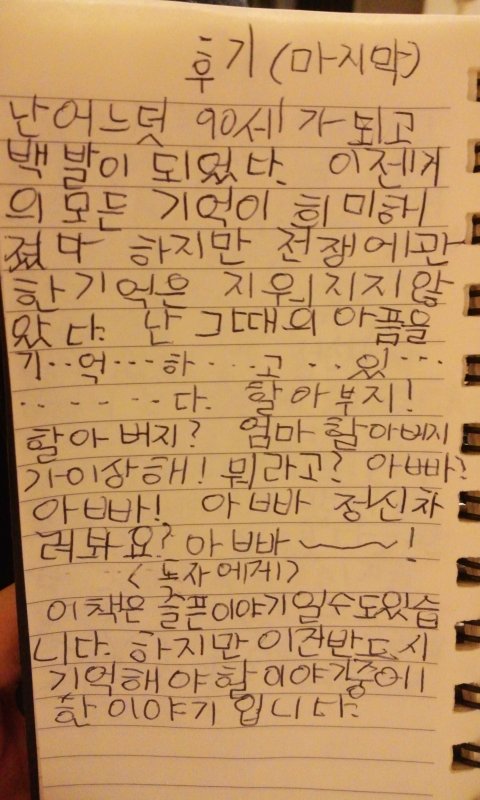 후기(마지막)
난어느덧 90세가 되고
백발이 되었다. 이젠거
의모든 기억이 희미해
졌다 하지만 전쟁에관
한기억은 지워지지않
았다. 난 그때의 아픔을
기··억···하···고··있···
·······다. 할아부지!
할아버지? 엄마 할아버지
가이상해! 뭐라고? 아빠?
아빠! 아빠 정신차
려봐요? 아빠~!
<독자에게>
이책은 슬픈이야기일수도있습
니다. 하지만 이건반드시
기억해야할 이야기중에
한 이야기 입니다.